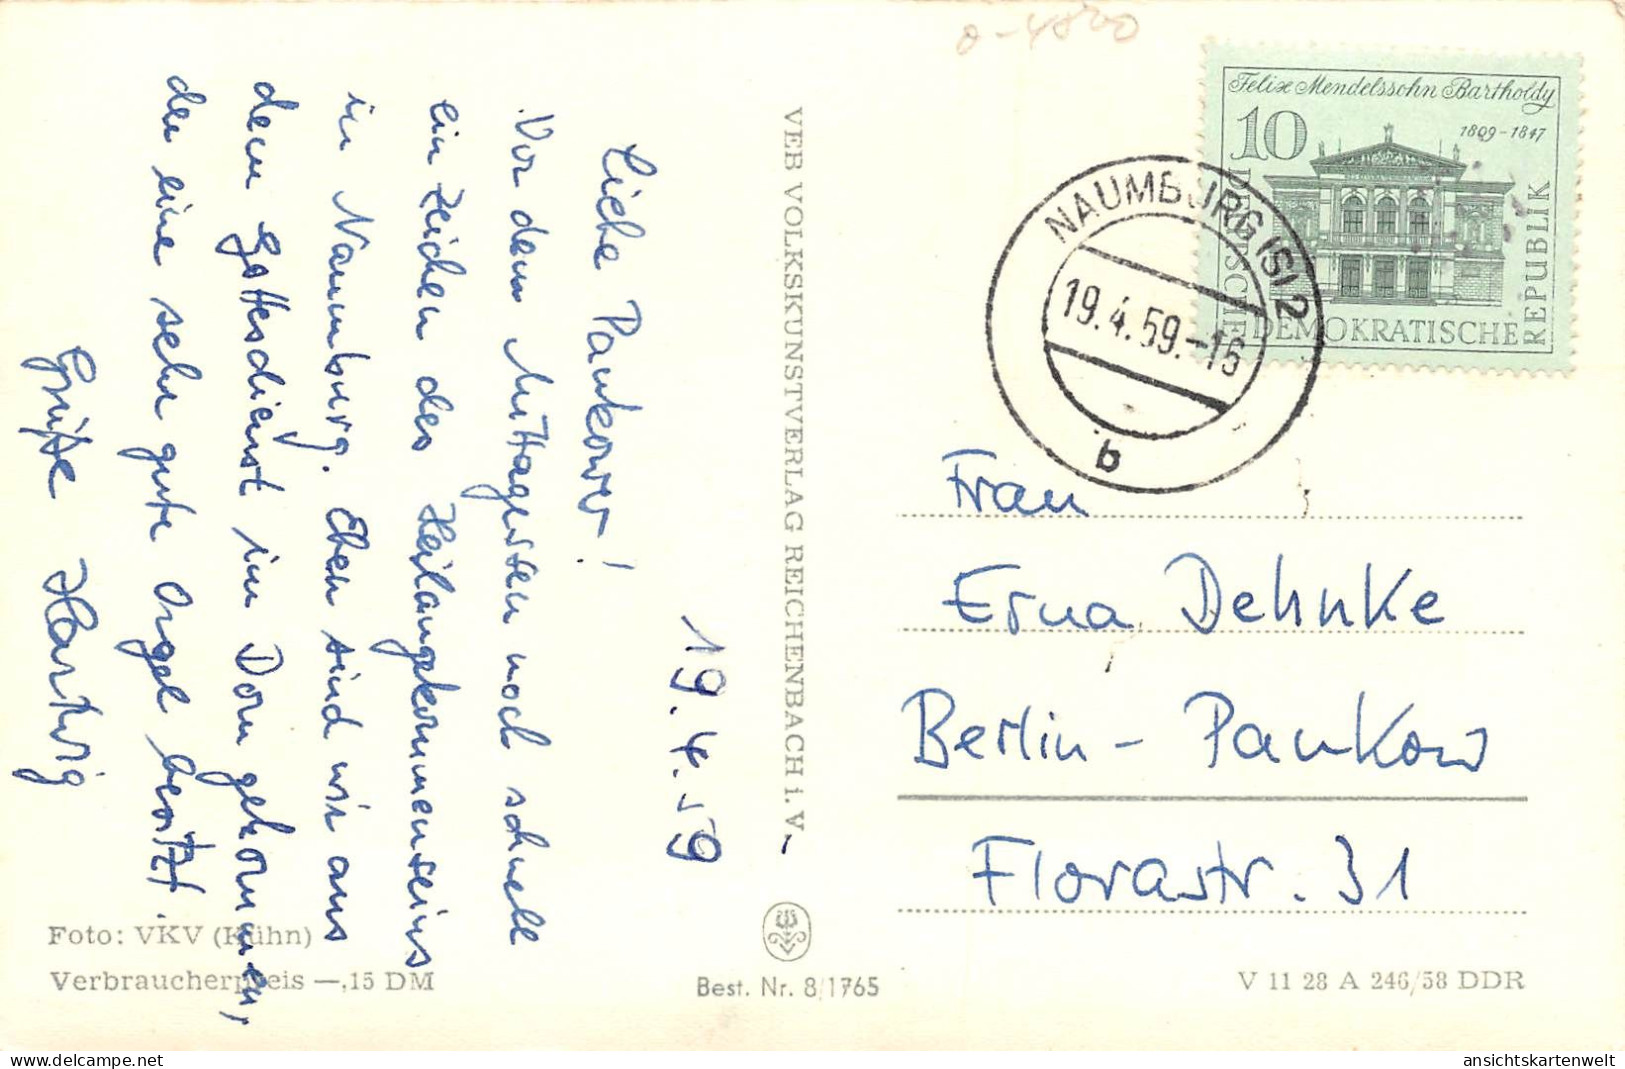 o-4800
Felix Mendelssohn Bartholdy
1809-1847
10
DEUTSCHE
DEMOKRATISCHE
REPUBLIK
NAUMBURG (S) 2
19.4.59.-16
b
19.4.59
Liebe Pankower!
Vor dem Mittagessen noch schnell
ein Zeichen des Heilangekommenseins
in Naumburg. Eben sind wir aus
dem Gottesdienst im Dom gekommen,
der eine sehr gute Orgel besitzt.
Grüße Hartwig
VEB VOLKSKUNSTVERLAG REICHENBACH i. V.
Frau
Erna Dehnke
Berlin - Pankow
Florastr. 31
Foto: VKV (Kühn)
Verbraucherpreis —,15 DM
Best. Nr. 8/1765
V 11 28 A 246/58 DDR
ansichtskartenwelt